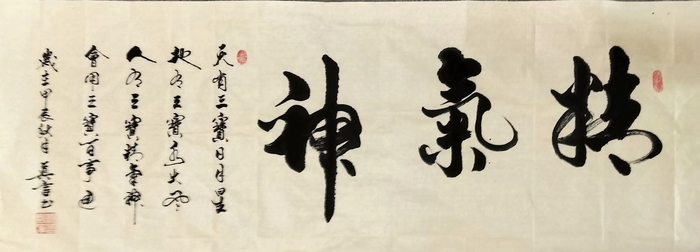 精氣神
天有三寶日月星
地有三寶水火風
人有三寶精氣神
會用三寶百事通
歲在甲辰秋月 書